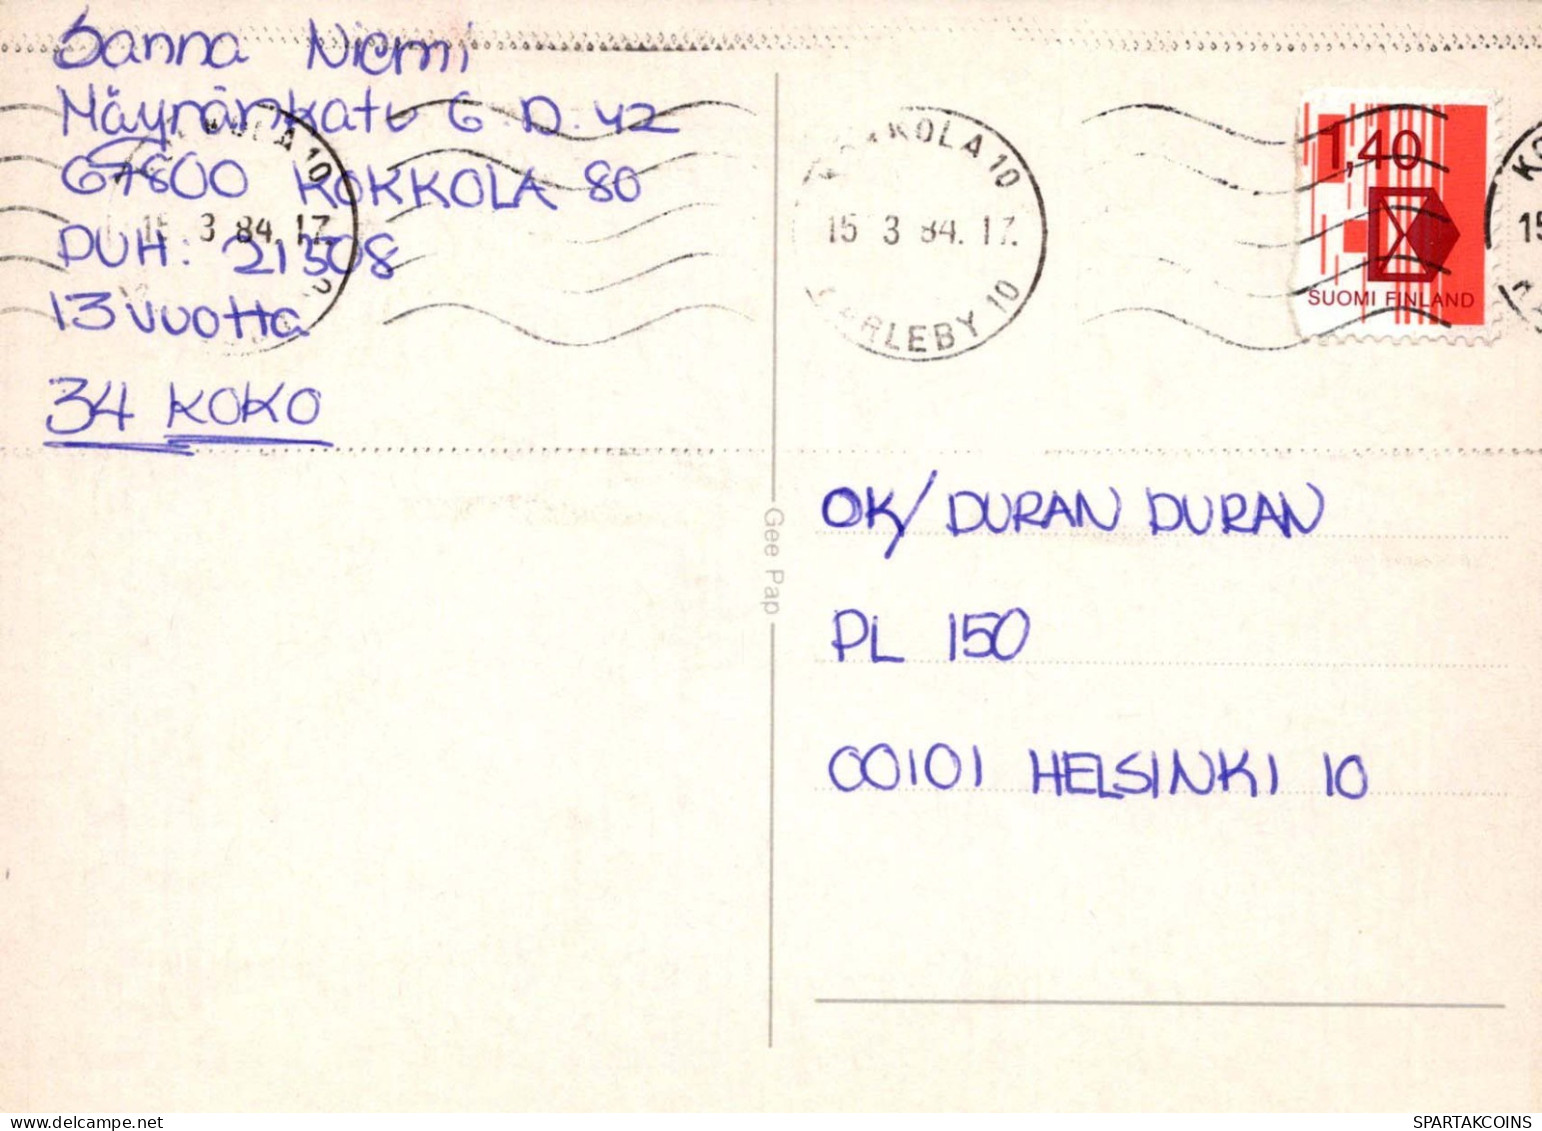 Sanna Niemi
Mäynänkatu 6 D. 42
67800 KOKKOLA 80
PUH: 21308
13 vuotta
34 KOKO
KOLA 10
15 3 84. 17.
KOKKOLA 10
15 3 84. 17.
KARLEBY 10
1,40
SUOMI FINLAND
KO
15
Gee Pap
OK/ DURAN DURAN
PL 150
00101 HELSINKI 10
delcampe.net
SPARTAKCOINS